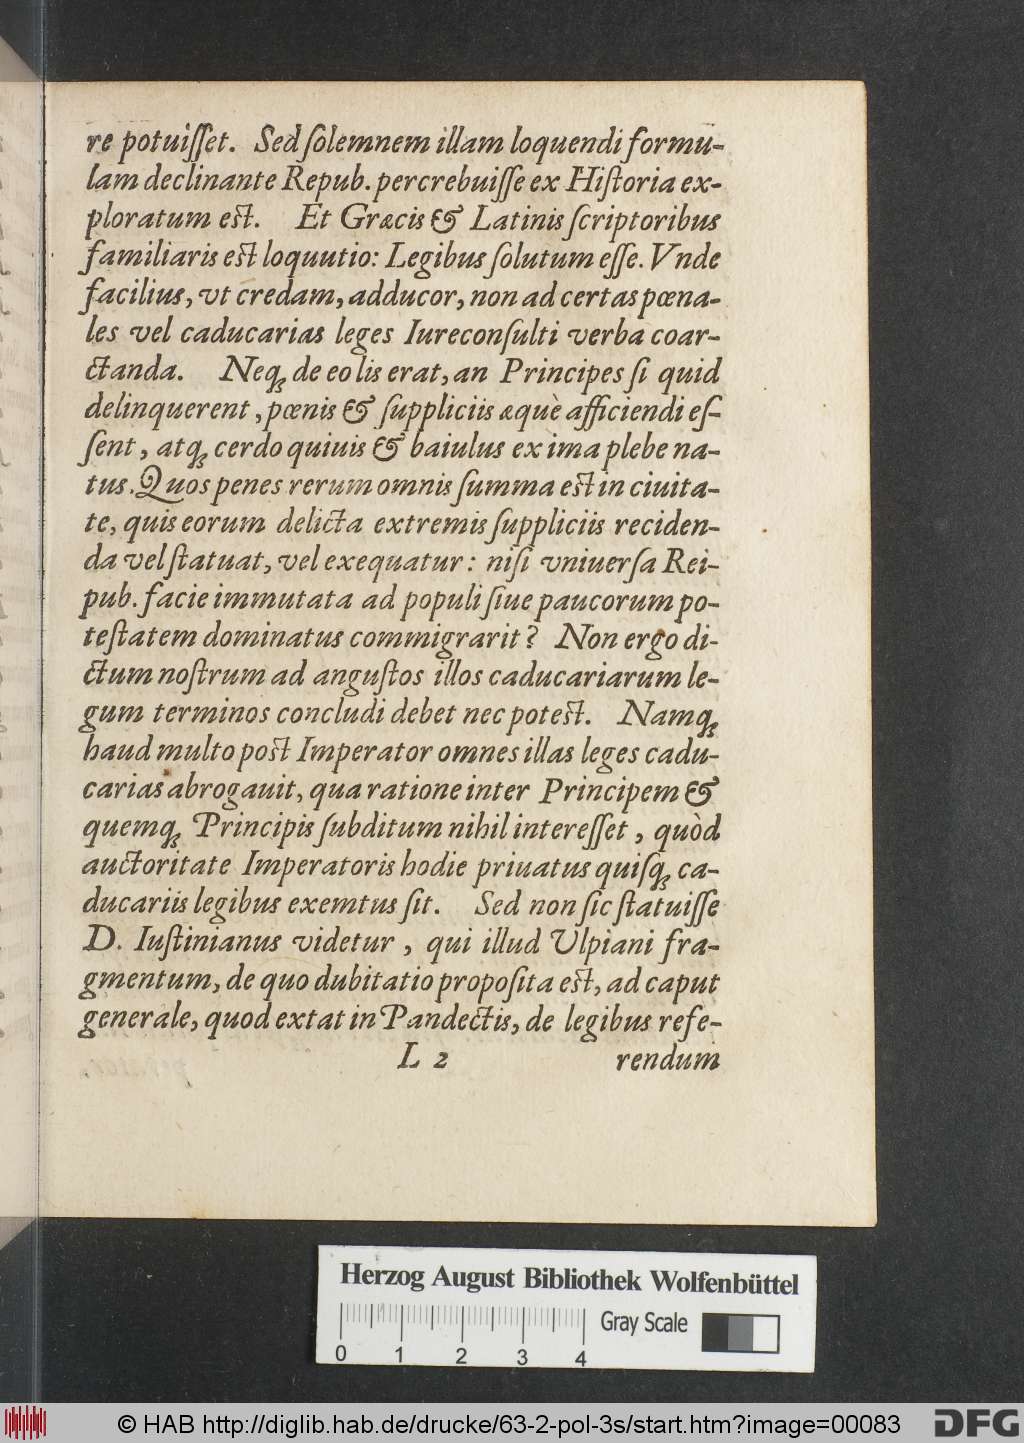 re potuiſſet. Sed ſolemnem illam loquendi formu-
lam declinante Repub. percrebuiſſe ex Hiſtoria ex-
ploratum eſt. Et Græcis & Latinis ſcriptoribus
familiaris eſt loquutio: Legibus ſolutum eſſe. Vnde
facilius, vt credam, adducor, non ad certas pœna-
les vel caducarias leges Iureconſulti verba coar-
ctanda. Neq; de eo lis erat, an Principes ſi quid
delinquerent, pœnis & ſuppliciis æquè afficiendi eſ-
ſent, atq; cerdo quiuis & baiulus ex ima plebe na-
tus. Quos penes rerum omnis ſumma eſt in ciuita-
te, quis eorum delicta extremis ſuppliciis reciden-
da vel ſtatuat, vel exequatur: niſi vniuerſa Rei-
pub. facie immutata ad populi ſiue paucorum po-
teſtatem dominatus commigrarit? Non ergo di-
ctum noſtrum ad anguſtos illos caducariarum le-
gum terminos concludi debet nec poteſt. Namq;
haud multo poſt Imperator omnes illas leges cadu-
carias abrogauit, qua ratione inter Principem &
quemq; Principis ſubditum nihil intereſſet, quòd
auctoritate Imperatoris hodie priuatus quiſq; ca-
ducariis legibus exemtus ſit. Sed non ſic ſtatuiſſe
D. Iuſtinianus videtur, qui illud Ulpiani fra-
gmentum, de quo dubitatio propoſita eſt, ad caput
generale, quod extat in Pandectis, de legibus refe-
L 2 rendum
Herzog August Bibliothek Wolfenbüttel
Gray Scale
0 1 2 3 4
© HAB http://diglib.hab.de/drucke/63-2-pol-3s/start.htm?image=00083
DFG